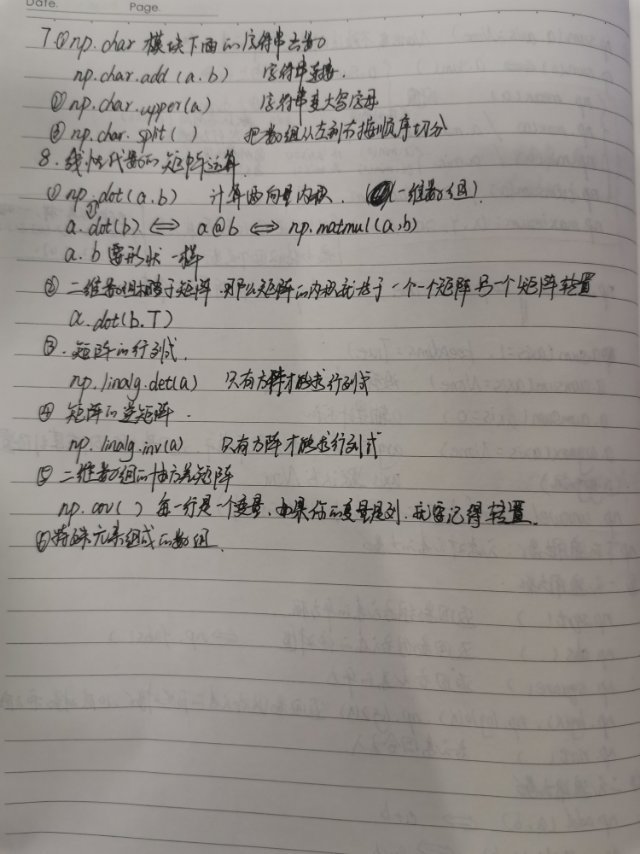 Date.
Page.
7.① np.char 模块下面的字符串函数
np.char.add (a.b) 字符串连接.
② np.char.upper(a) 字符串变大写字母
③ np.char.split( ) 把数组从左到右按顺序切分
8. 线性代数的矩阵运算.
① np.dot(a.b) 计算两向量内积. (一维数组).
a.dot(b) ⇔ a@b ⇔ np.matmul(a,b)
a.b 需形状一样
② 二维数组相当于矩阵.那么矩阵的内积就是于一个一个矩阵另一个矩阵转置
a.dot(b.T)
③. 矩阵的行列式.
np.linalg.det(a) 只有方阵才能求行列式
④ 矩阵的逆矩阵.
np.linalg.inv(a) 只有方阵才能求行列式
⑤ 二维数组的协方差矩阵
np.cov( ) 每一行是一个变量,如果你的变量是列.就要记得转置.
⑥ 特殊元素组成的数组.